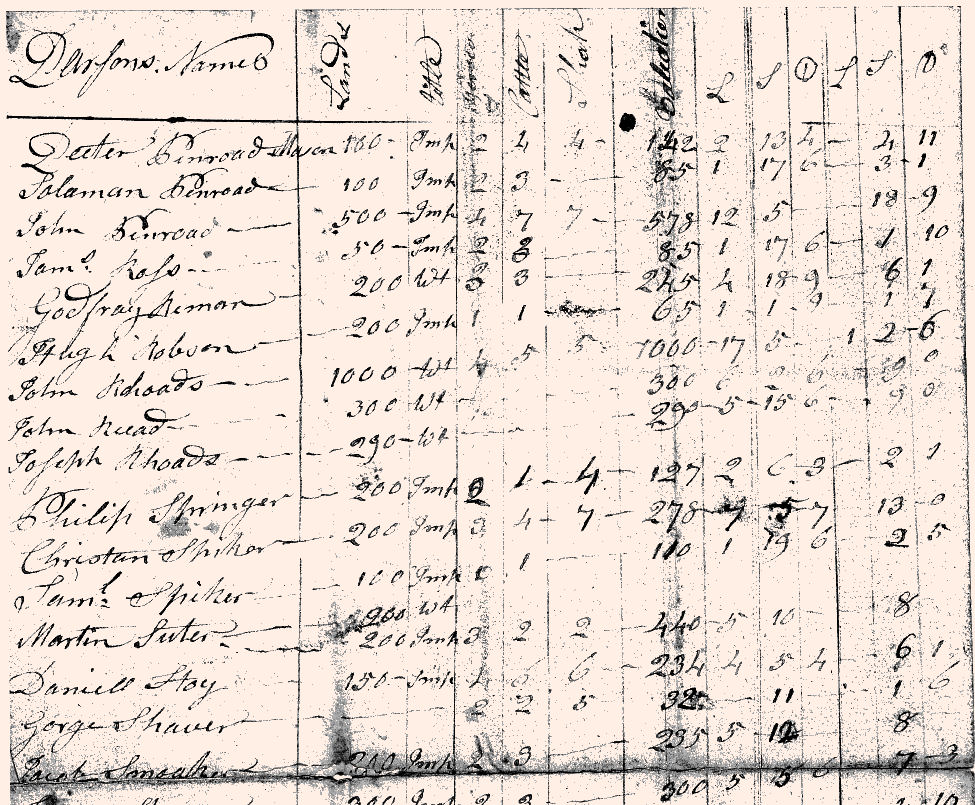 Parsons. Names Land Title Horses Cattle Sheep Valuation L S D L S D
Peeter Penroad Mason 100 - Imp 2 4 4 - 142 2 13 4 - 2 11
Solaman Penroad 100 Imp 2 3 - 85 1 17 6 - 3 - 1
John Penroad 500 - Imp 4 7 7 - 578 12 5 18 - 9
Saml. Ross 50 - Imp 2 3 85 1 17 6 - 1 10
Godfray Reman 200 Wt 3 3 245 4 18 9 6 1
Hugh Robson 200 Imp 1 1 65 1 1 9 1 7
John Rhoads 1000 - Wt 4 5 5 - 1000 - 17 5 - 1 2 - 6
John Read 300 Wt 300 6
Joseph Rhoads 290 - Wt 290 - 5 - 15 6 - 9 0
Philip Springer 200 Imp 2 1 - 4 - 127 2 6 - 3 - 2 1
Christan Spiker 200 Imp 3 4 - 7 - 278 - 4 - 5 - 7 13 - 0
Saml. Spiker 100 Imp 1 1 110 1 19 6 2 5
Martin Suter 200 Wt
200 Imp 3 2 2 440 5 10 8
Daniell Stoy 150 - Imp 4 6 6 - 234 4 5 4 - 6 1
Gorge Shaver 2 2 5 32 11 1 6
Jacob Smoaker 200 Imp 2 3 235 5 12 8
300 5 5 6 7 - 3
300 Imp 2 3